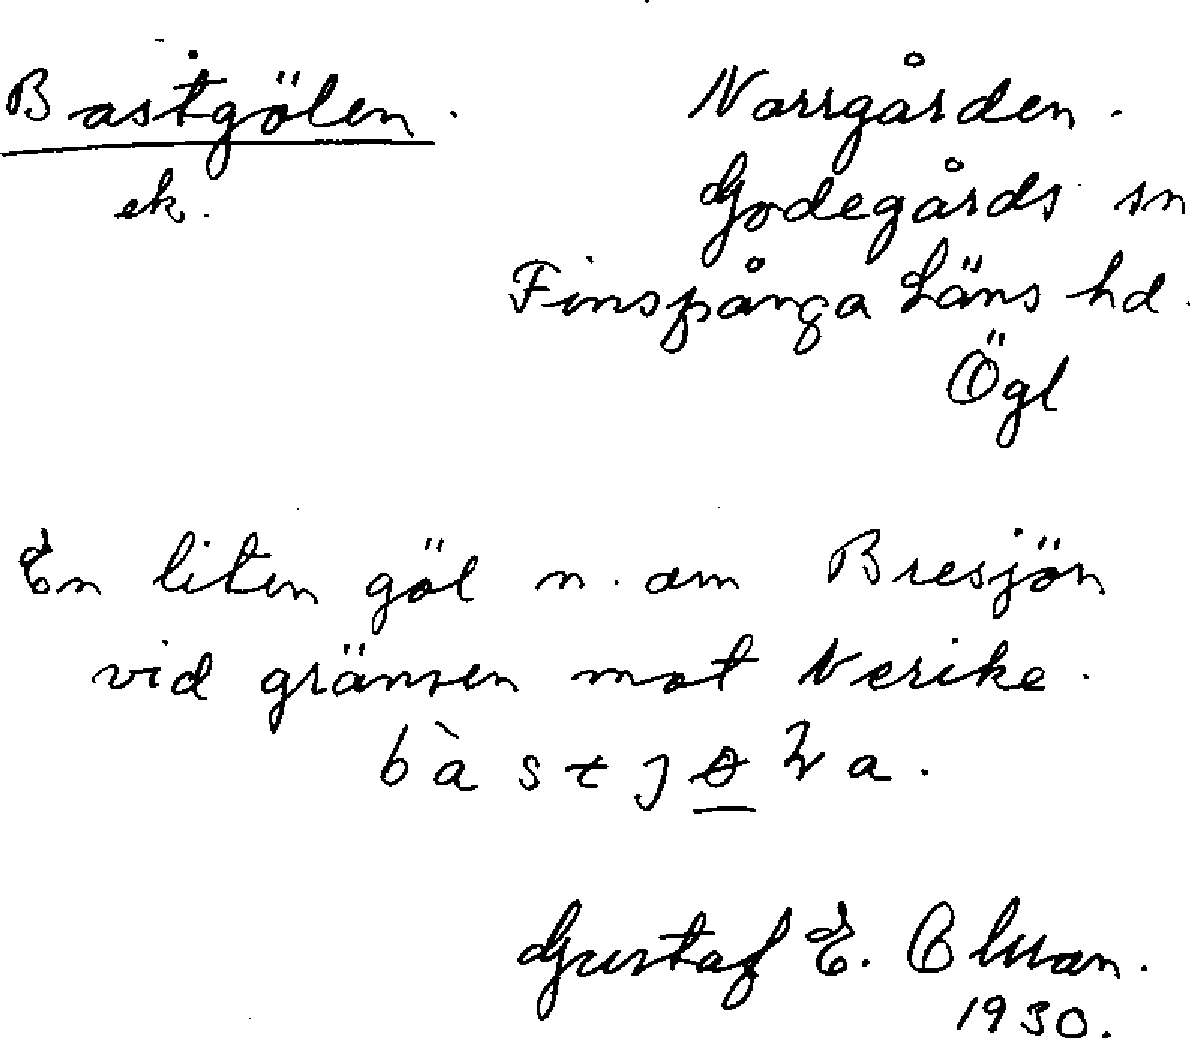 Bastgölen.
ek.
Norrgården.
Godegårds sn
Finspånga Läns hd.
Ögl
En liten göl n. om Bresjön
vid gränsen mot Nerike.
Gustaf E.
1930.